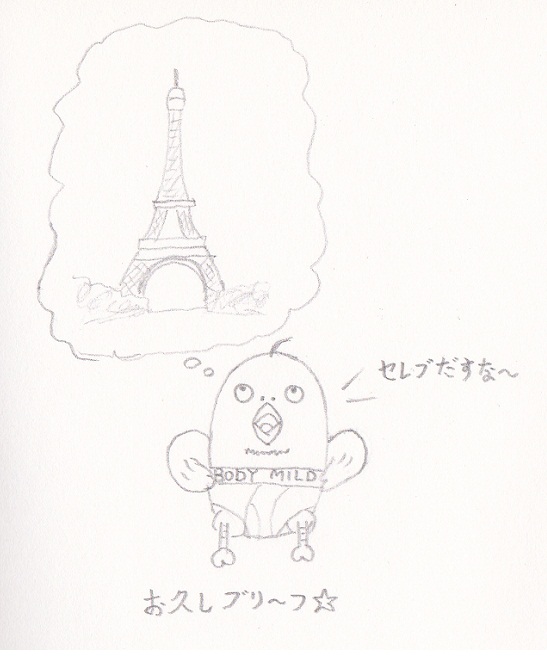 セレブだすな～
BODY MILD
お久しブリ～フ☆